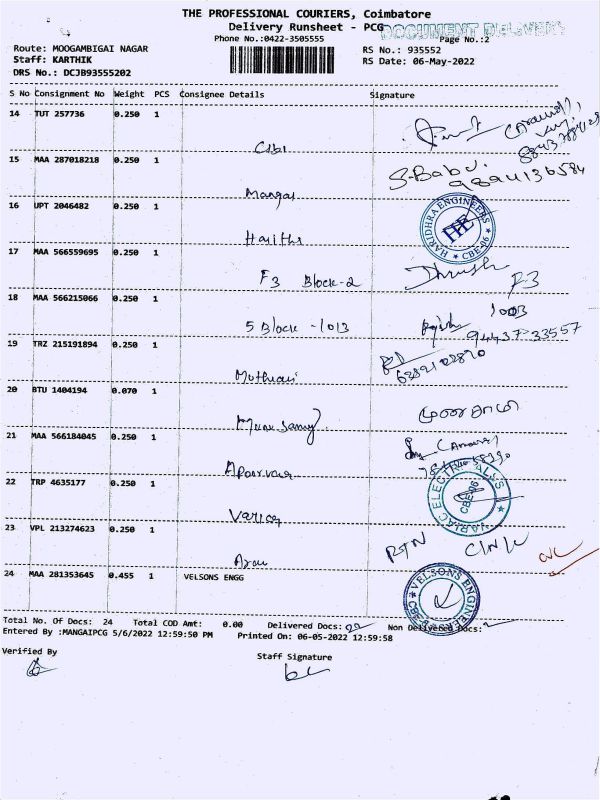 THE PROFESSIONAL COURIERS, Coimbatore
Delivery Runsheet - PCG
DOCUMENT DELIVERY
Phone No.:0422-3505555
Page No.:2
Route: MOOGAMBIGAI NAGAR
RS No.: 935552
Staff: KARTHIK
RS Date: 06-May-2022
DRS No.: DCJB93555202
S No Consignment No Weight PCS Consignee Details Signature
14 TUT 257736 0.250 1
88437
Cibi
15 MAA 287018218 0.250 1 S-Babu.
9894136584
Mangai
16 UPT 2046482 0.250 1
HARIDHRA ENGINEERS HE CBE-06
Harithi
17 MAA 566559695 0.250 1
F3 Block-2 F-3
18 MAA 566215066 0.250 1
1003
5 Block - 1013 94437-33557
19 TRZ 215191894 0.250 1
Muthuari
20 BTU 1404194 0.070 1
முனுசாமி
Munusamy
21 MAA 566184045 0.250 1
Apoorvaa
22 TRP 4635177 0.250 1
VARIAC ELECTRICALSS CBE-06
Variac
23 VPL 213274623 0.250 1
RTN C/N/C
Arau
24 MAA 281353645 0.455 1 VELSONS ENGG
VELSONS ENGINEERS CBE-6
Total No. Of Docs: 24 Total COD Amt: 0.00 Delivered Docs: 22 Non Delivered Docs: 2
Entered By :MANGAIPCG 5/6/2022 12:59:50 PM Printed On: 06-05-2022 12:59:58
Verified By
Staff Signature